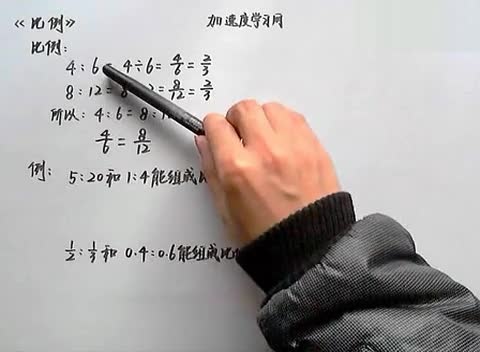 《比例》
加速度学习网
比例:
4:6 4÷6=4/6=2/3
8:12= =8/12=2/3
所以: 4:6=8:
4/6=8/12
例:
5:20和1:4能组成
1/2:1/3和0.4:0.6能组成比